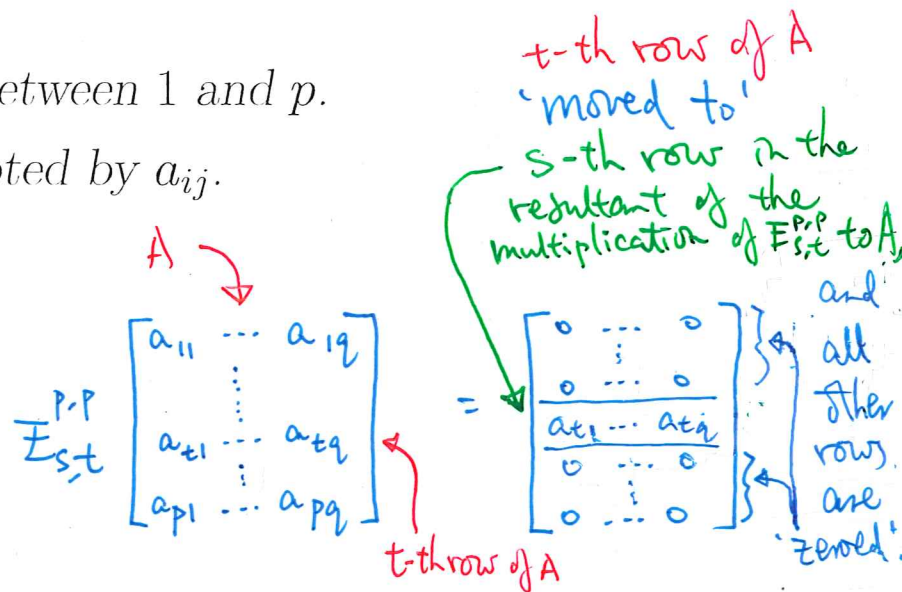 etween 1 and p.
oted by a_{ij}.
t-th row of A
'moved to'
s-th row in the
resultant of the
multiplication of E^{p,p}_{s,t} to A,
and
all
other
rows
are
'zeroed'.
A
E^{p,p}_{s,t} [ a_{11} ... a_{1q}
⋮
a_{t1} ... a_{tq}
⋮
a_{p1} ... a_{pq} ]
= [ 0 ... 0
⋮
0 ... 0
a_{t1} ... a_{tq}
0 ... 0
⋮
0 ... 0 ]
t-th row of A